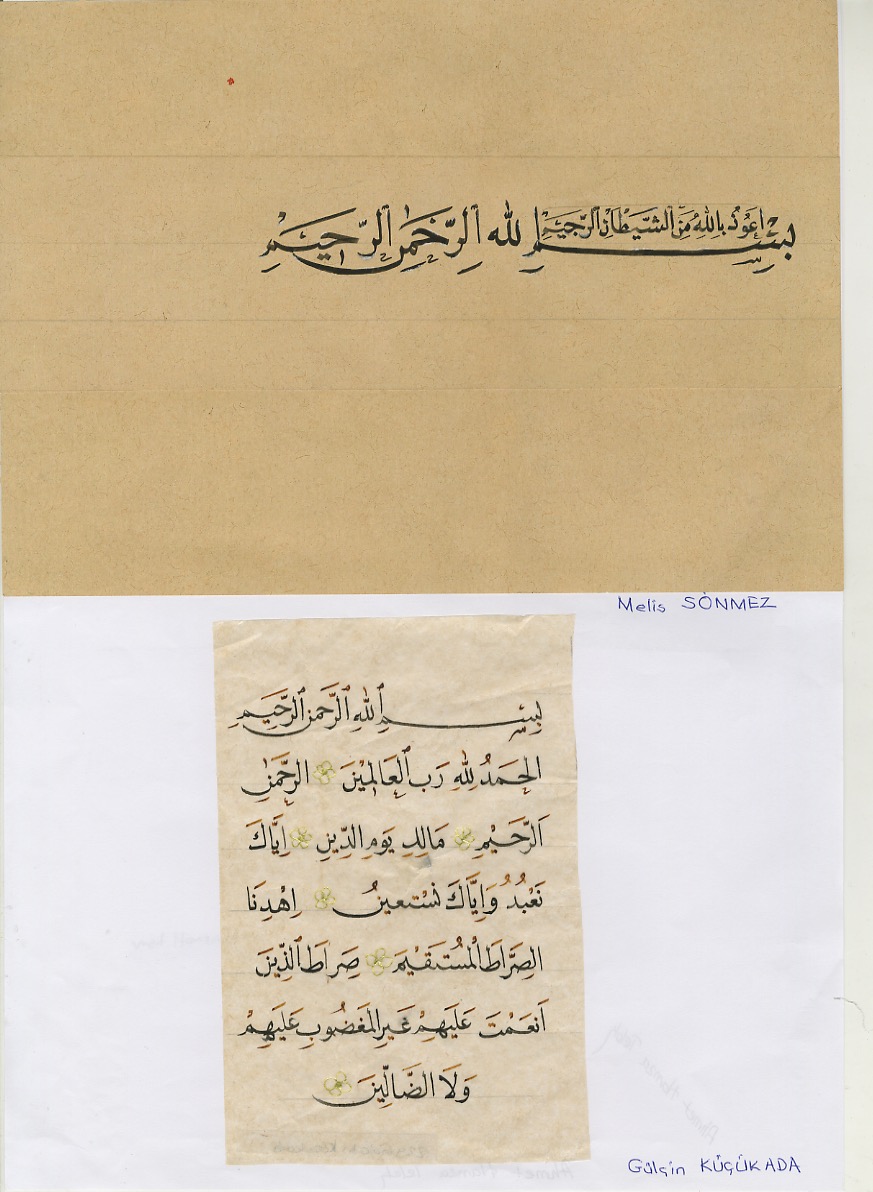 اعوذ بالله من الشيطان الرجيم
بسم لله الرحمن الرحيم
Melis SÖNMEZ
بسم الله الرحمن الرحيم
الحمد لله رب العالمين الرحمن
الرحيم مالك يوم الدين اياك
نعبد واياك نستعين اهدنا
الصراط المستقيم صراط الذين
انعمت عليهم غير المغضوب عليهم
ولا الضالين
Gülçin KÜÇÜKADA